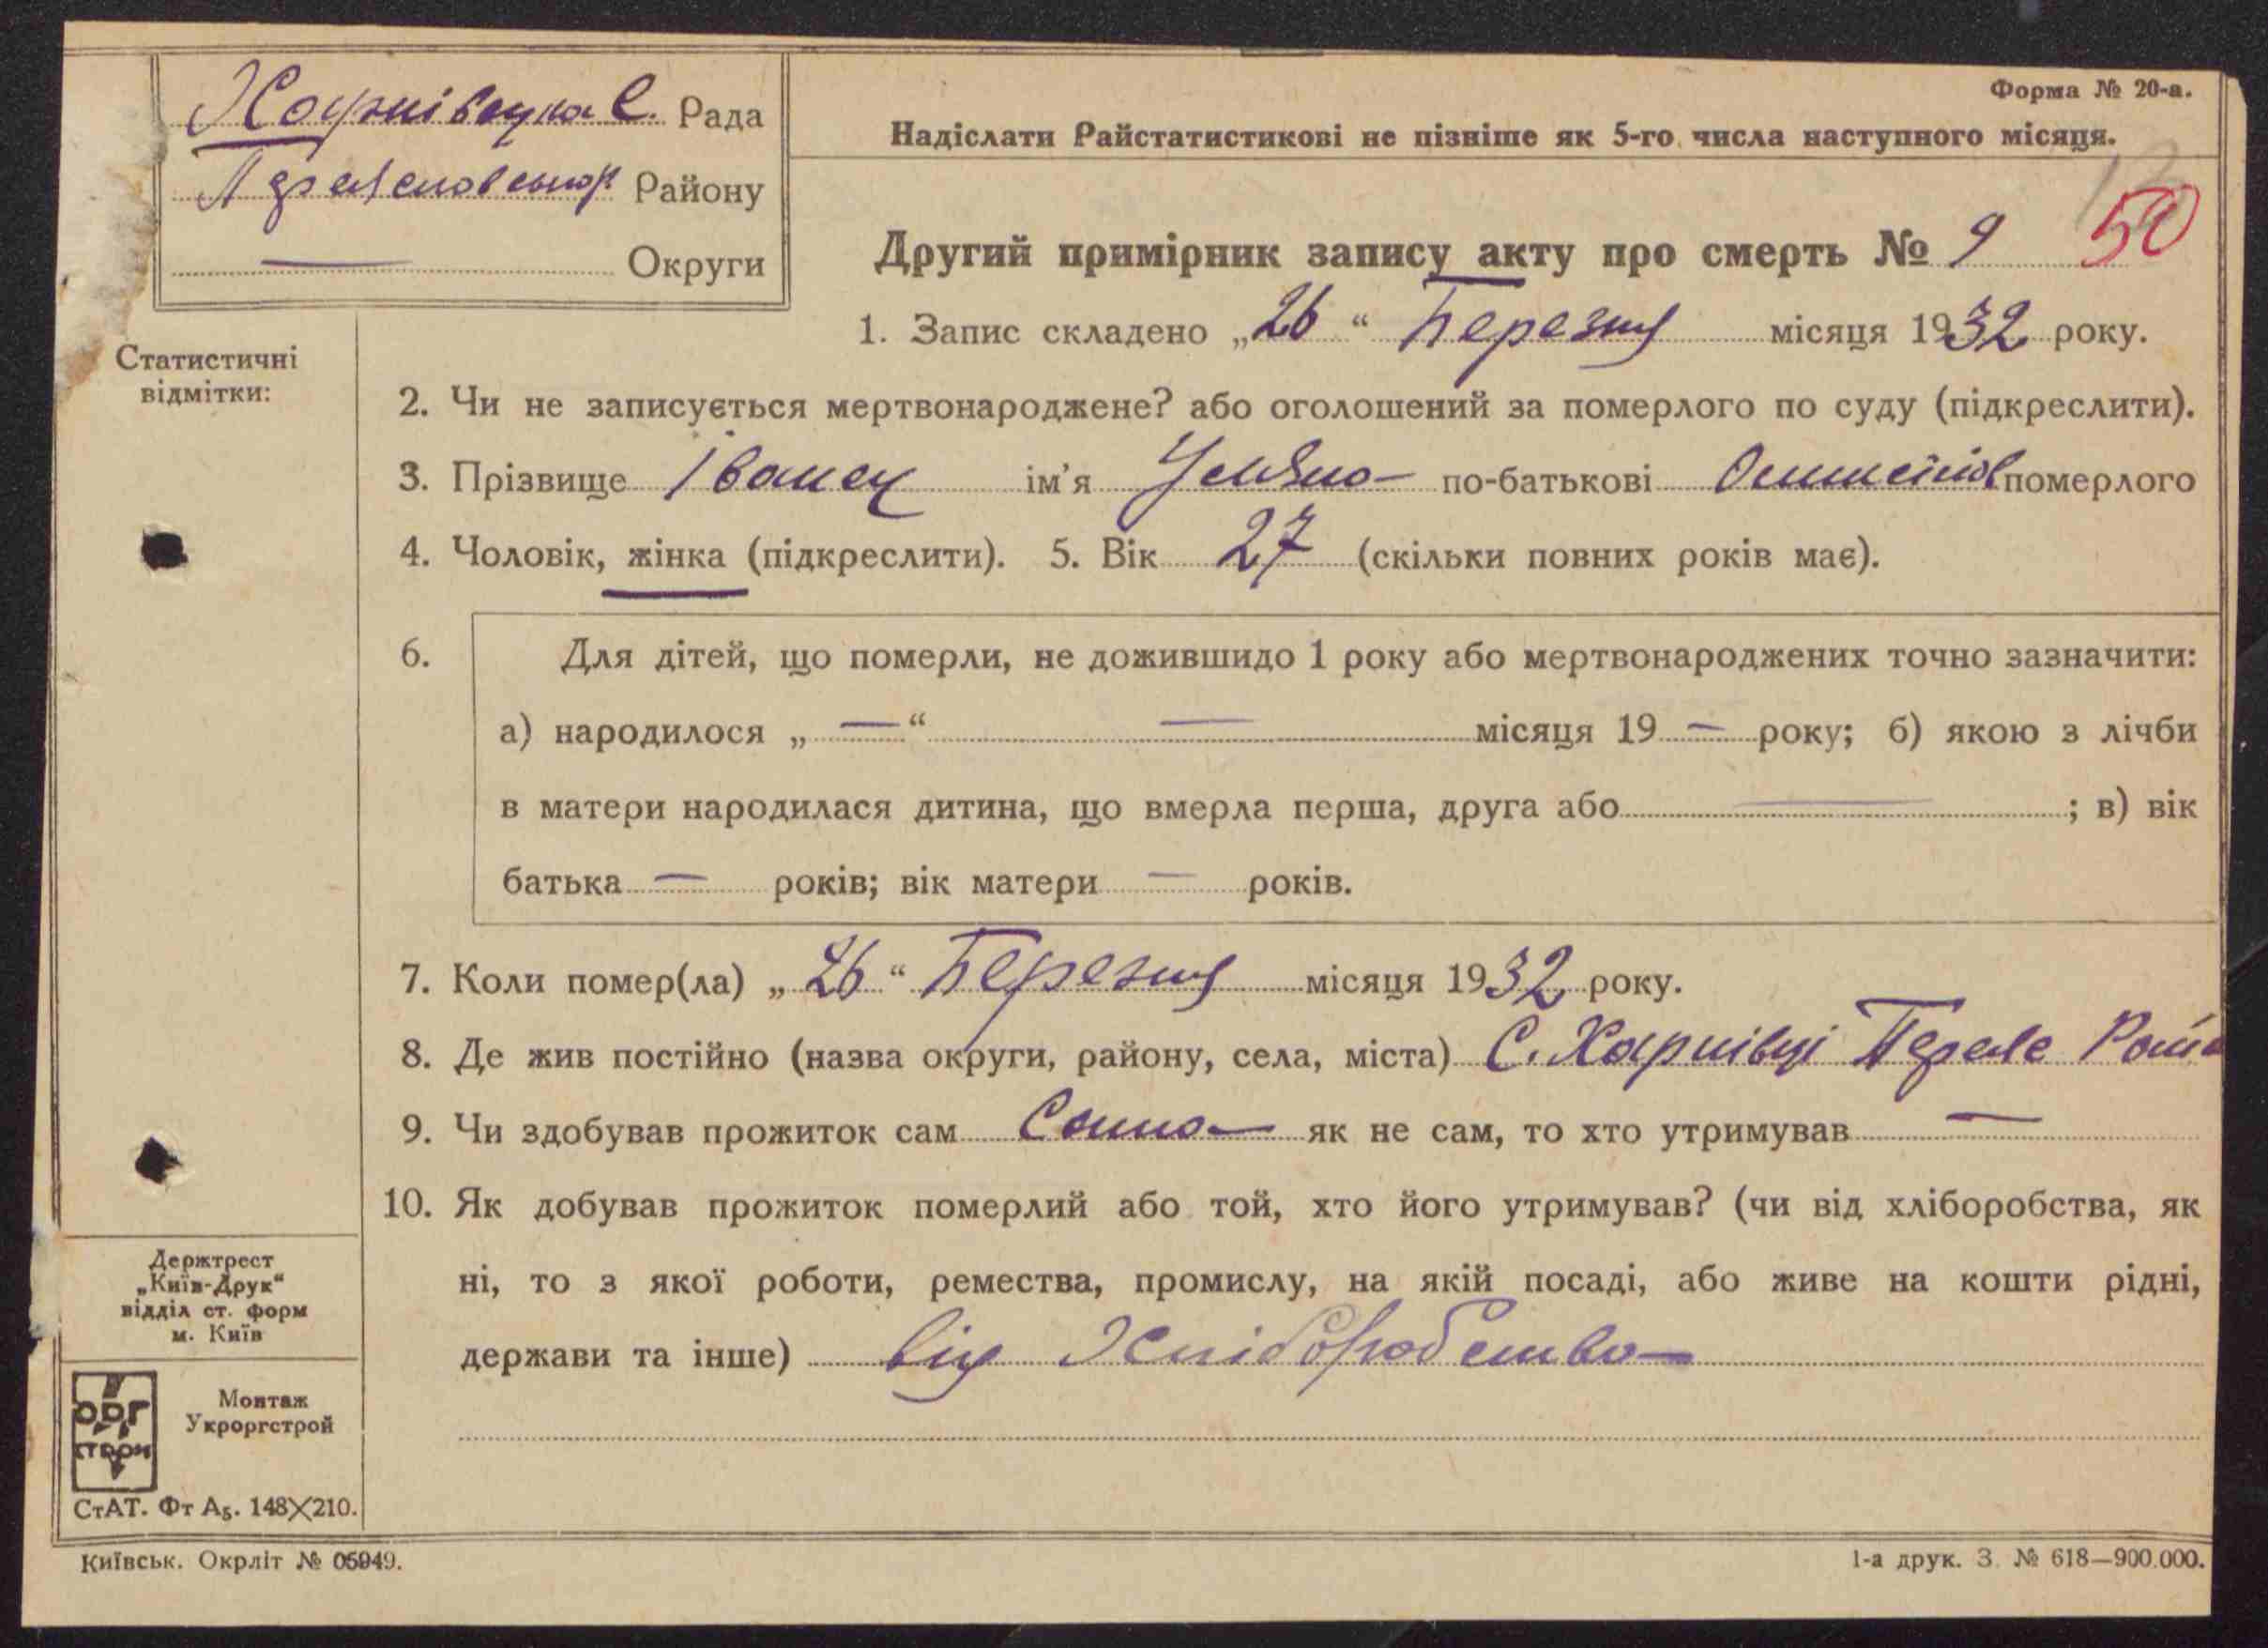 Харківецька С. Рада
Переяславськог Району
— Округи
Форма № 20-а.
Надіслати Райстатистикові не пізніше як 5-го числа наступного місяця.
50
Другий примірник запису акту про смерть № 9
1. Запис складено „26“ Березня місяця 1932 року.
Статистичні
відмітки:
2. Чи не записується мертвонароджене? або оголошений за померлого по суду (підкреслити).
3. Прізвище Іванец ім'я Уляна по-батькові померлого
4. Чоловік, жінка (підкреслити). 5. Вік 27 (скільки повних років має).
6. Для дітей, що померли, не дожившидо 1 року або мертвонароджених точно зазначити:
а) народилося „—“ — місяця 19 — року; б) якою з лічби
в матери народилася дитина, що вмерла перша, друга або — ; в) вік
батька — років; вік матери — років.
7. Коли помер(ла) „26“ Березня місяця 1932 року.
8. Де жив постійно (назва округи, району, села, міста) С. Харківці Переяс Рай
9. Чи здобував прожиток сам Сама як не сам, то хто утримував —
10. Як добував прожиток померлий або той, хто його утримував? (чи від хліборобства, як
ні, то з якої роботи, ремества, промислу, на якій посаді, або живе на кошти рідні,
держави та інше) від Хліборобства
Держтрест
„Київ-Друк“
відділ ст. форм
м. Київ
ОРГ
СТРОЙ
Монтаж
Укроргстрой
СтАТ. Фт А5. 148X210.
Київськ. Окрліт № 05949.
1-а друк. З. № 618—900.000.